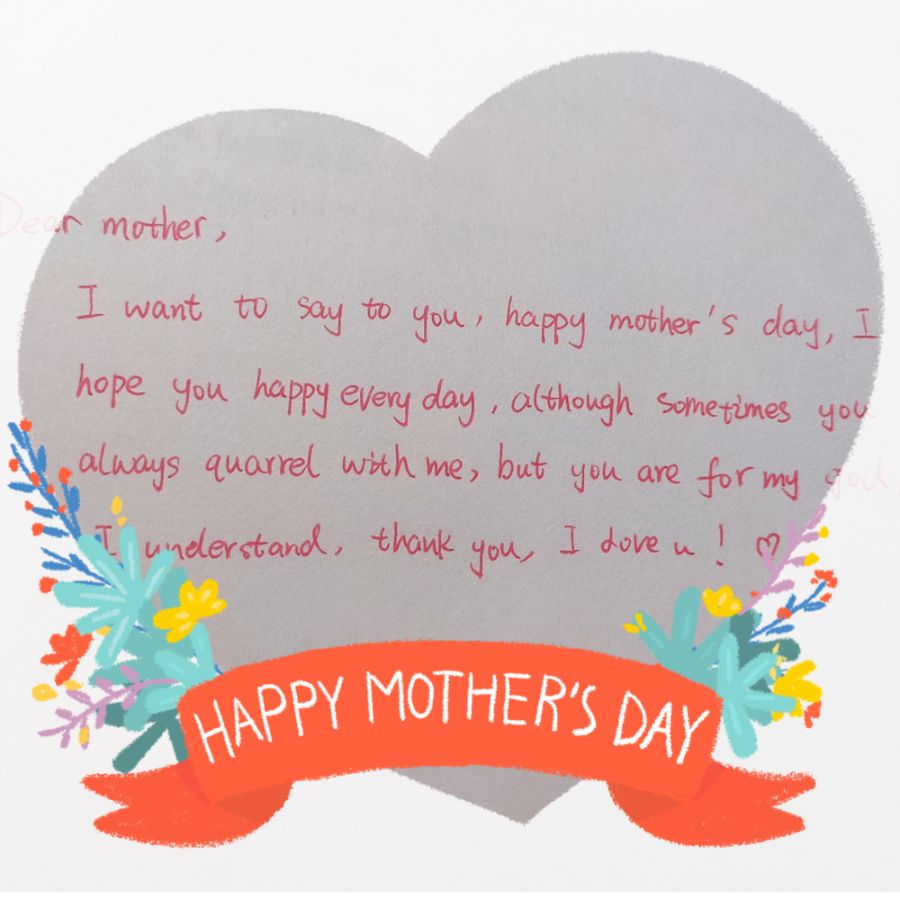 Dear mother,
I want to say to you, happy mother's day, I
hope you happy every day, although sometimes you
always quarrel with me, but you are for my god
I understand, thank you, I love u! ♡
HAPPY MOTHER'S DAY